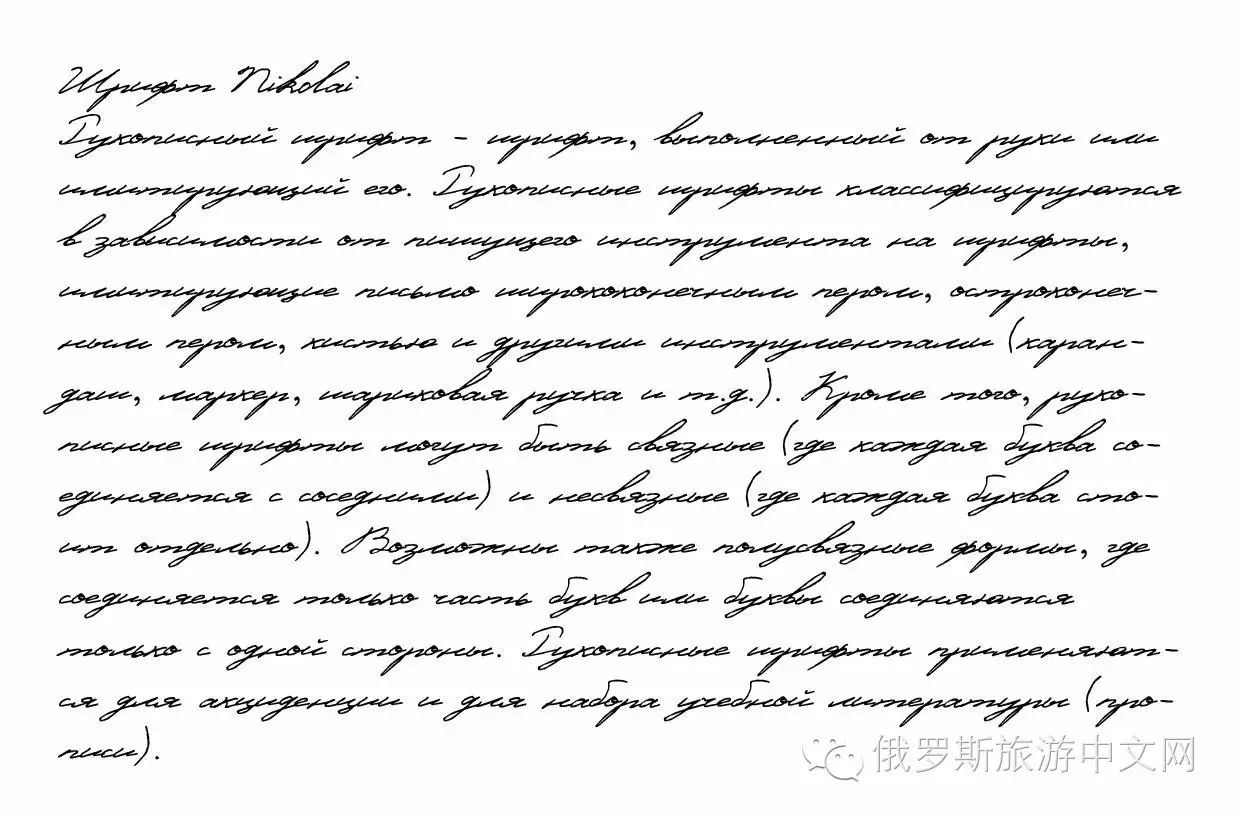 Шрифт Nikolai
Рукописный шрифт - шрифт, выполненный от руки или
имитирующий его. Рукописные шрифты классифицируются
в зависимости от пишущего инструмента на шрифты,
имитирующие письмо ширококонечным пером, остроконеч-
ным пером, кистью и другими инструментами (каран-
даш, маркер, шариковая ручка и т.д.). Кроме того, руко-
писные шрифты могут быть связные (где каждая буква со-
единяется с соседними) и несвязные (где каждая буква сто-
ит отдельно). Возможны также полусвязные формы, где
соединяется только часть букв или буквы соединяются
только с одной стороны. Рукописные шрифты применяют-
ся для акциденции и для набора учебной литературы (про-
писи).
俄罗斯旅游中文网